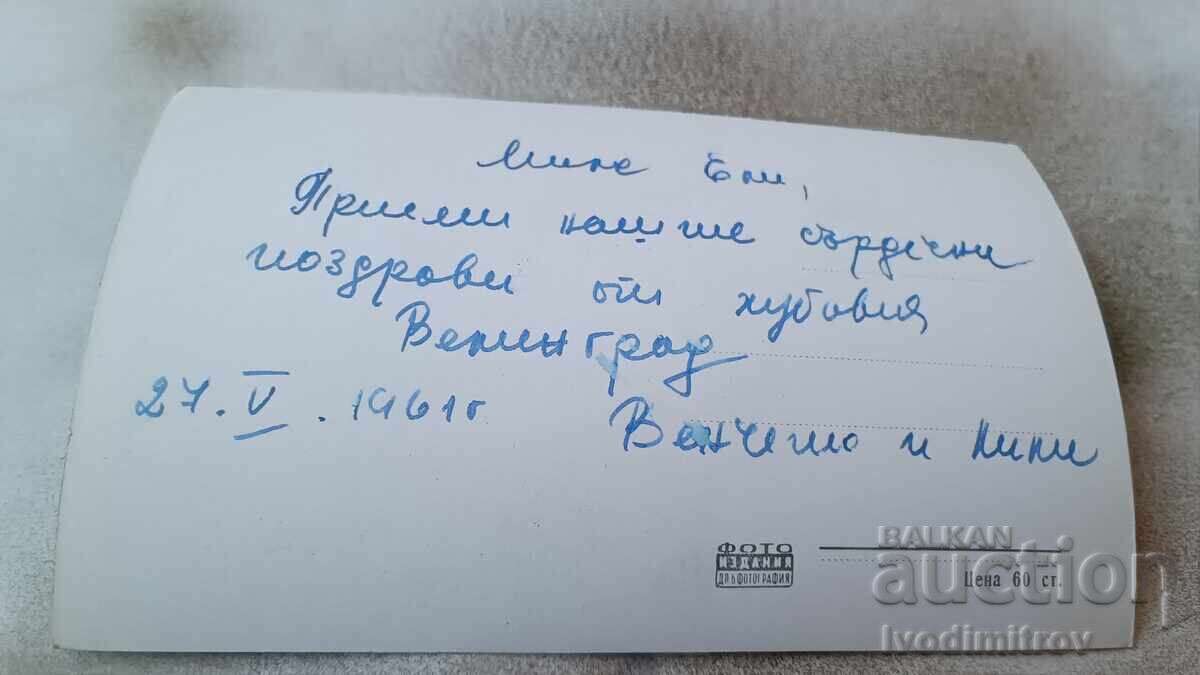 Мила Ели,
Приеми нашите сърдечни
поздрави от хубавия
Велинград
27. V. 1961 г
Венчето и Лили
ФОТО
ИЗДАНИЯ
ФОТОГРАФИЯ
Цена 60 ст.
BALKAN
auction
Ivodimitrov